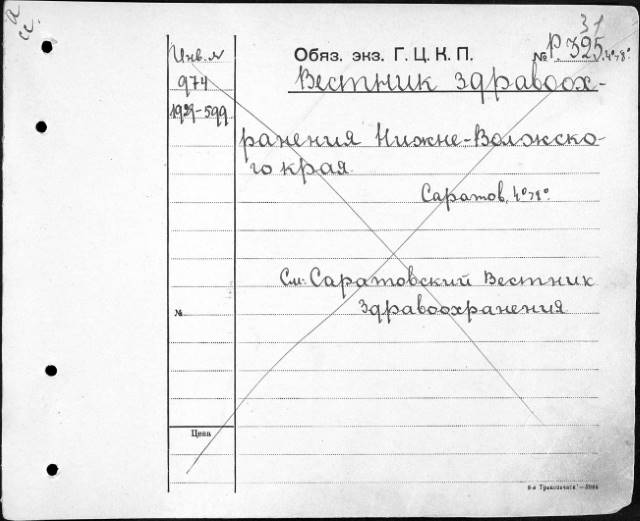 31
Инв. №
974
1929-599
Обяз. экз. Г. Ц. К. П.
№ Р. 325. 4°>8°.
Вестник здравоох-
ранения Нижне-Волжско-
го края.
Саратов, 4°>8°.
См: Саратовский Вестник
Здравоохранения
№
Цена